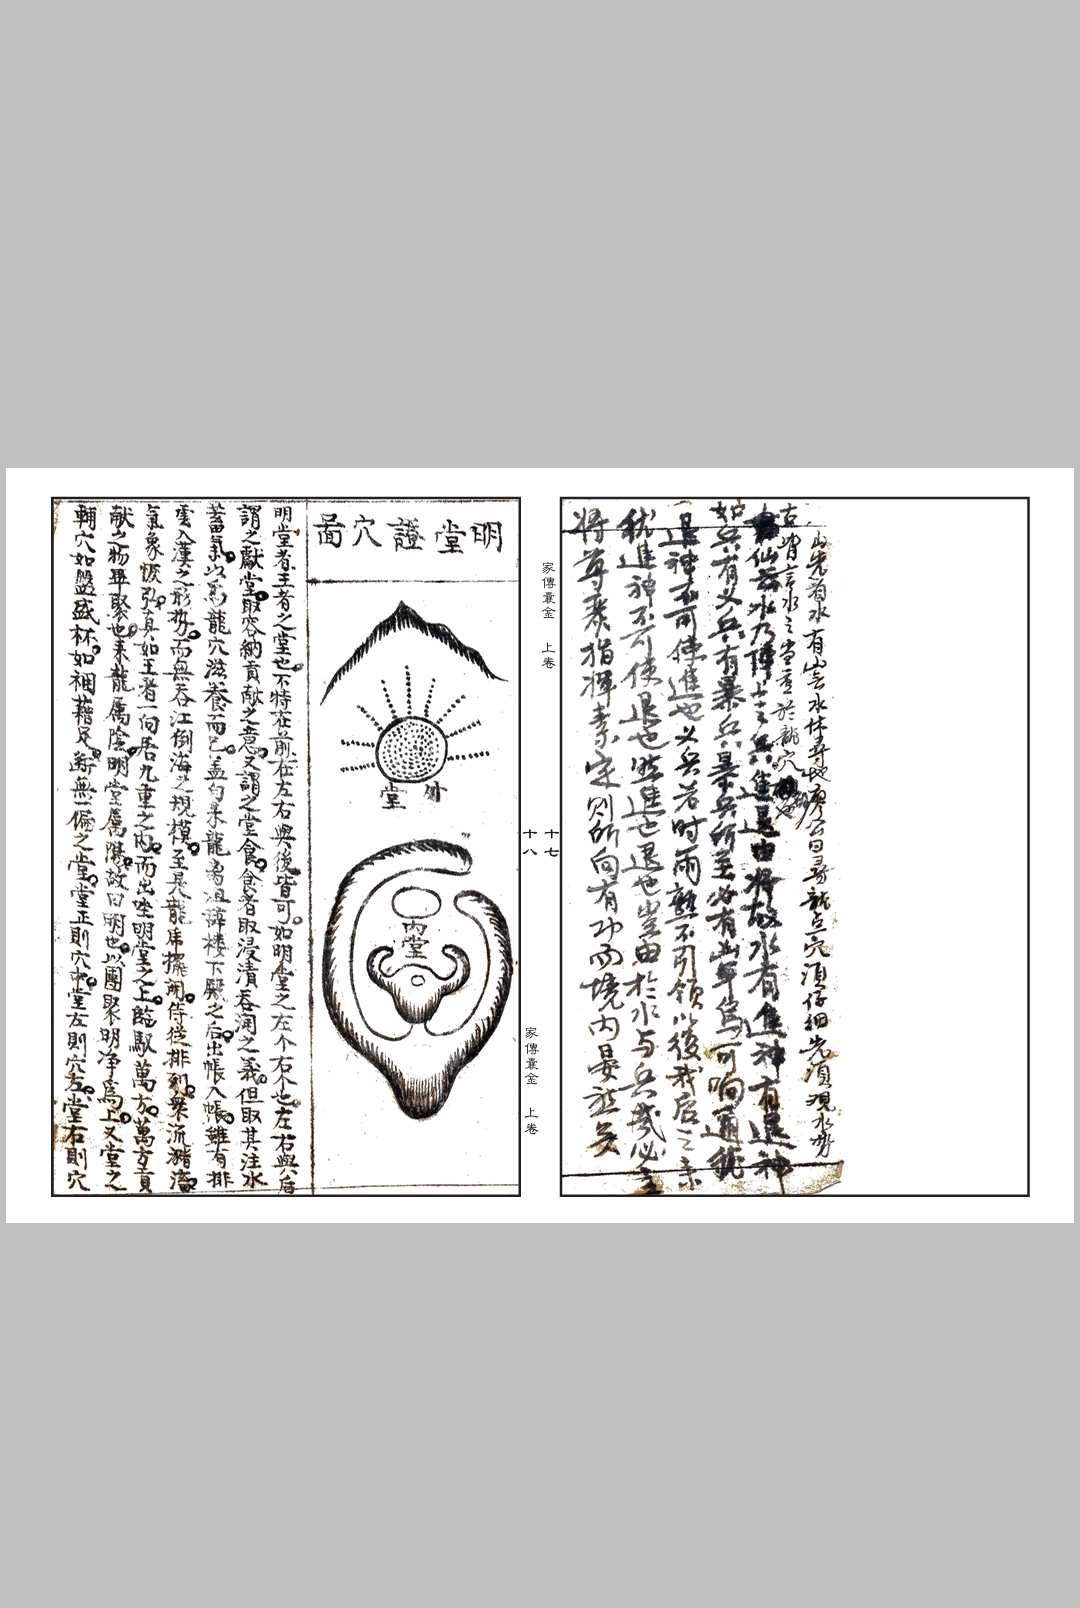 山先看水有山無水休尋地廖公曰尋龍点穴須仔細先須观水势
古皆言水之当重於龍穴
仙云水乃陣士之兵進退由将故水有進神有退神
如兵有义兵有暴兵暴兵所至必有凶年焉可响邇犹
退神不可使進也义兵若时雨蘇不引领以後我后之来
犹進神不可使退也然進也退也岂由於水与兵哉必主
将尊衆指揮素定则所向有功而境内晏然矣
家傳囊金 上卷
十七
十八
家傳囊金 上卷
明堂證穴啚
外
堂
内堂
明堂者王者之堂也不特在前在左右與後皆可如明堂之左个右个也左右與后
謂之獻堂取容納貢献之意又謂之堂食食者取浸清吞润之義但取其注水
蓄氣以為龍穴滋養而已盖向来龍為沮薄楼下殿之后出帳入帳雖有排
雲入漢之形势而無吞江倒海之規模至是龍虎擺開侍從排列衆流潴滀
氣象恢弘真如王者一向居九重之内而出坐明堂之上臨馭萬方萬方貢
献之物畢聚也来龍屬陰明堂屬陽故曰明也以團聚明净為上又堂之
輔穴如盤盛杯如裀藉足断無一偏之堂堂正則穴中堂左則穴左堂右則穴